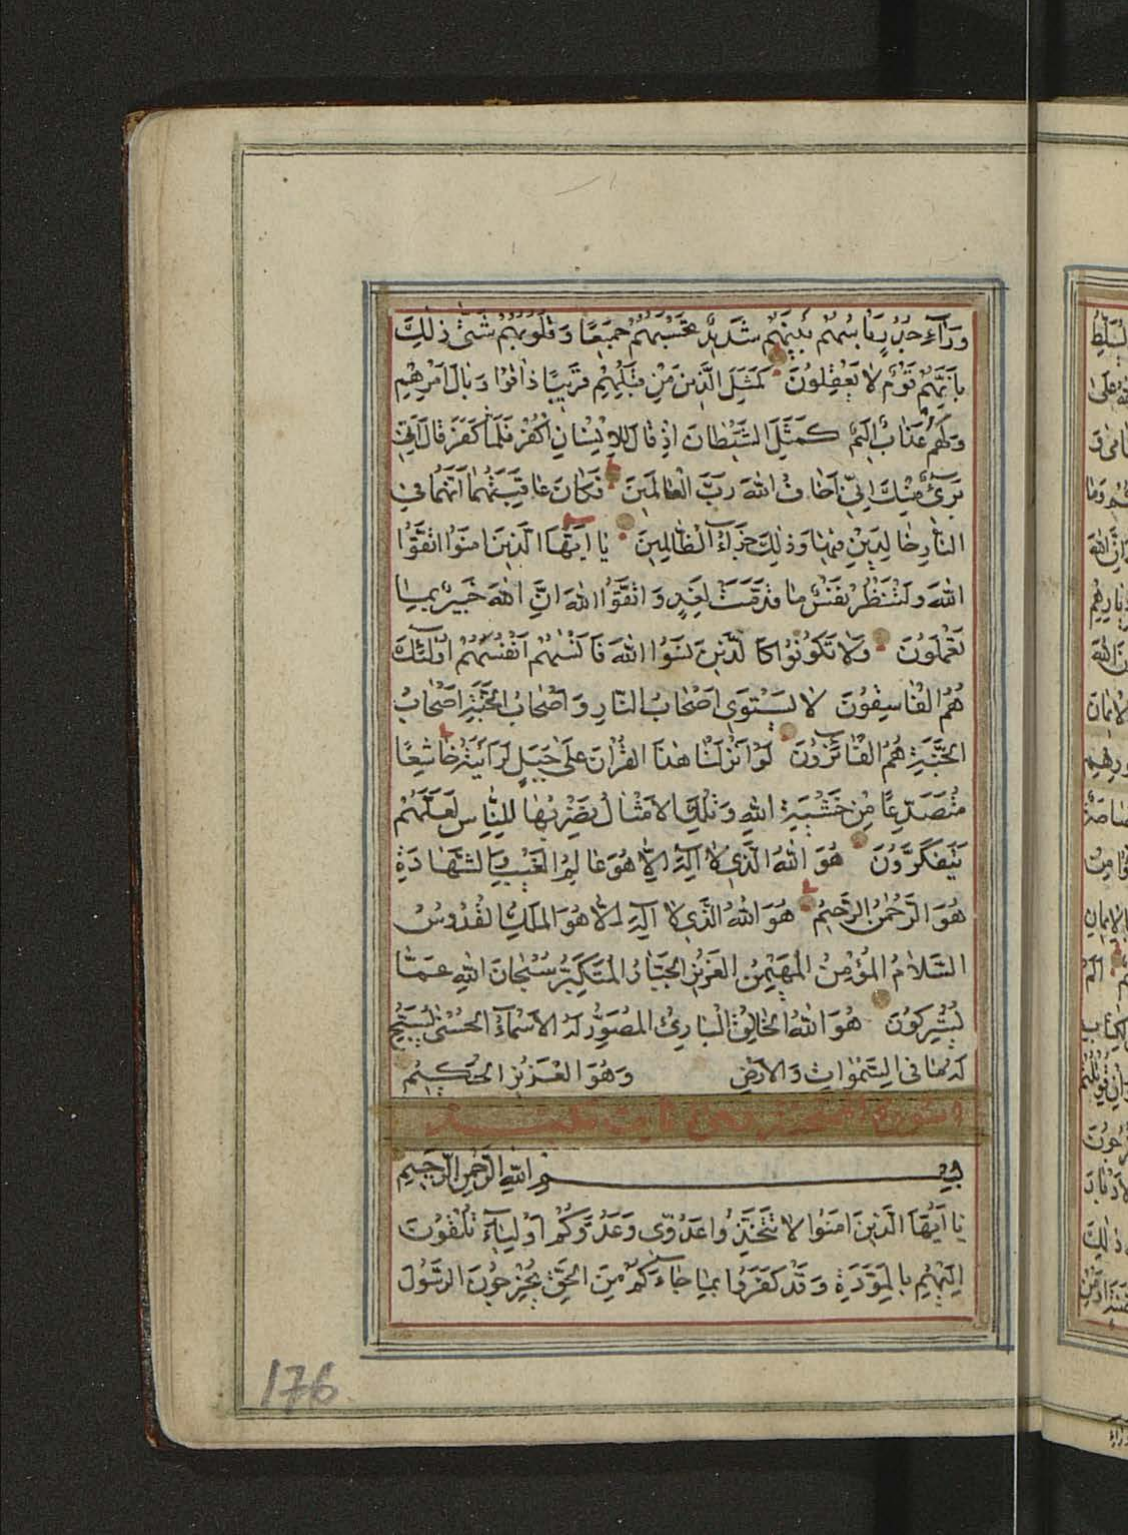 وَرَآءِ جُدُرٍ بَاْسُهُمْ بَيْنَهُمْ شَدِيدٌ تَحْسَبُهُمْ جَمِيعًا وَقُلُوبُهُمْ شَتّٰى ذٰلِكَ
بِاَنَّهُمْ قَوْمٌ لَا يَعْقِلُونَ كَمَثَلِ الَّذِينَ مِنْ قَبْلِهِمْ قَرِيبًا ذَاقُوا وَبَالَ اَمْرِهِمْ
وَلَهُمْ عَذَابٌ اَلِيمٌ كَمَثَلِ الشَّيْطَانِ اِذْ قَالَ لِلْاِنْسَانِ اكْفُرْ فَلَمَّا كَفَرَ قَالَ اِنِّي
بَرِيٓءٌ مِنْكَ اِنِّيٓ اَخَافُ اللّٰهَ رَبَّ الْعَالَمِينَ فَكَانَ عَاقِبَتَهُمَا اَنَّهُمَا فِي
النَّارِ خَالِدَيْنِ فِيهَا وَذٰلِكَ جَزَآءُ الظَّالِمِينَ يَا اَيُّهَا الَّذِينَ اٰمَنُوا اتَّقُوا
اللّٰهَ وَلْتَنْظُرْ نَفْسٌ مَا قَدَّمَتْ لِغَدٍ وَاتَّقُوا اللّٰهَ اِنَّ اللّٰهَ خَبِيرٌ بِمَا
تَعْمَلُونَ وَلَا تَكُونُوا كَالَّذِينَ نَسُوا اللّٰهَ فَاَنْسٰهُمْ اَنْفُسَهُمْ اُولٰٓئِكَ
هُمُ الْفَاسِقُونَ لَا يَسْتَوِي اَصْحَابُ النَّارِ وَاَصْحَابُ الْجَنَّةِ اَصْحَابُ
الْجَنَّةِ هُمُ الْفَائِزُونَ لَوْ اَنْزَلْنَا هٰذَا الْقُرْاٰنَ عَلٰى جَبَلٍ لَرَاَيْتَهُ خَاشِعًا
مُتَصَدِّعًا مِنْ خَشْيَةِ اللّٰهِ وَتِلْكَ الْاَمْثَالُ نَضْرِبُهَا لِلنَّاسِ لَعَلَّهُمْ
يَتَفَكَّرُونَ هُوَ اللّٰهُ الَّذِي لَآ اِلٰهَ اِلَّا هُوَ عَالِمُ الْغَيْبِ وَالشَّهَادَةِ
هُوَ الرَّحْمٰنُ الرَّحِيمُ هُوَ اللّٰهُ الَّذِي لَآ اِلٰهَ اِلَّا هُوَ الْمَلِكُ الْقُدُّوسُ
السَّلَامُ الْمُؤْمِنُ الْمُهَيْمِنُ الْعَزِيزُ الْجَبَّارُ الْمُتَكَبِّرُ سُبْحَانَ اللّٰهِ عَمَّا
يُشْرِكُونَ هُوَ اللّٰهُ الْخَالِقُ الْبَارِئُ الْمُصَوِّرُ لَهُ الْاَسْمَآءُ الْحُسْنٰى يُسَبِّحُ
لَهُ مَا فِي السَّمٰوَاتِ وَالْاَرْضِ وَهُوَ الْعَزِيزُ الْحَكِيمُ
سورة الممتحنة
بِسْمِ اللّٰهِ الرَّحْمٰنِ الرَّحِيمِ
يَا اَيُّهَا الَّذِينَ اٰمَنُوا لَا تَتَّخِذُوا عَدُوِّي وَعَدُوَّكُمْ اَوْلِيَآءَ تُلْقُونَ
اِلَيْهِمْ بِالْمَوَدَّةِ وَقَدْ كَفَرُوا بِمَا جَآءَكُمْ مِنَ الْحَقِّ يُخْرِجُونَ الرَّسُولَ
176